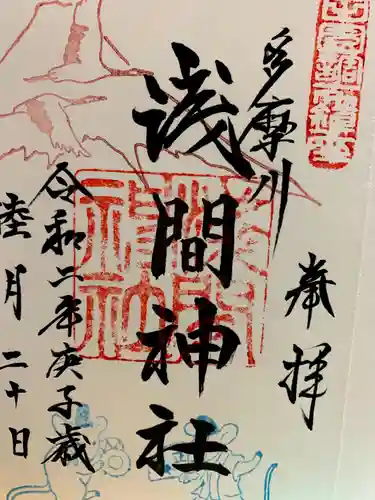 奉拝
多摩川
浅間神社
令和二年庚子歳
陸月二十日